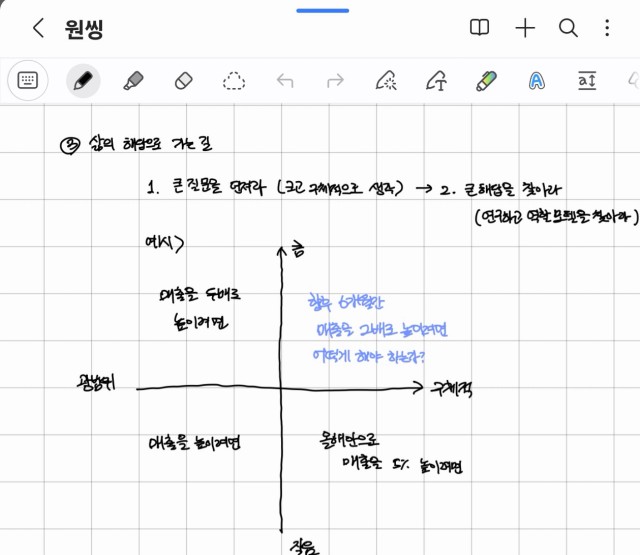 원씽
③ 삶의 해답으로 가는 길
1. 큰 질문을 던져라 (크고 구체적으로 생각) → 2. 큰 해답을 찾아라
(연구하고 역할 모델을 찾아라)
예시)
큼
매출을 두배로
높이려면
향후 6개월간
매출을 2배로 높이려면
어떻게 해야 하는가?
광범위
구체적
매출을 높이려면
올해안으로
매출을 5% 높이려면
작음